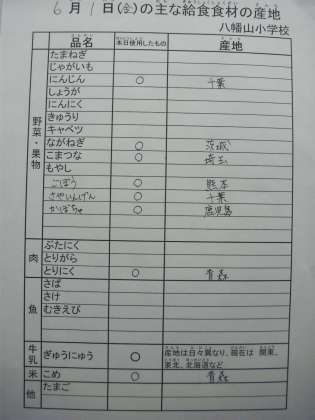 6月1日(金)の主な給食食材の産地
八幡山小学校
品名 本日使用したもの 産地
野菜・果物
たまねぎ
じゃがいも
にんじん ○ 千葉
しょうが
にんにく
きゅうり
キャベツ
ながねぎ ○ 茨城
こまつな ○ 埼玉
もやし
ごぼう ○ 熊本
さやいんげん ○ 千葉
かぼちゃ ○ 鹿児島
肉
ぶたにく
とりがら
とりにく ○ 青森
魚
さば
さけ
むきえび
牛乳 ぎゅうにゅう ○ 産地は日々異なり、現在は 関東、
東北、北海道など
米 こめ ○ 青森
他 たまご